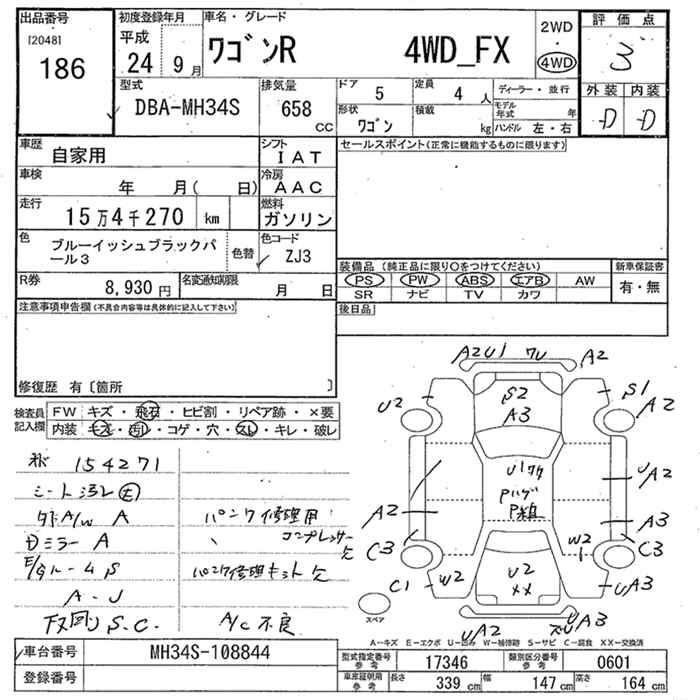 出品番号 初度登録年月 車名・グレード 2WD 評価点
[2048] 平成 ワゴンR 4WD_FX ・ 3
186 24 9月 4WD
型式 排気量 ドア 5 定員 4人 ディーラー・並行 外装 内装
DBA-MH34S 658 CC 形状 ワゴン 積載 kg モデル年式 年 D D
ハンドル 左・右
車歴 自家用 シフト IAT セールスポイント(正常に機能するものに限ります)
車検 年 月( 日) 冷房 AAC
走行 15万4千270 km 燃料 ガソリン
色 ブルーイッシュブラックパール3 色替 色コード ZJ3
装備品 (純正品に限り○をつけてください) 新車保証書
R券 8,930円 名変通知期限 月 日 PS PW ABS エアB AW 有・無
SR ナビ TV カワ
注意事項申告欄(不具合内容等は具体的に記入して下さい) 後日品
修復歴 有〔箇所 〕
検査員記入欄 FW キズ・飛石・ヒビ割・リペア跡・×要
内装 キズ・汚れ・コゲ・穴・スレ・キレ・破レ
154271
シート汚レ
A/W A パンク修理用
Dミラー A コンプレッサー欠
E/gルーム S パンク修理キット欠
A-U
下回り S.C. A/C不良
A2 U1 A2
S2 S1
U2 A3 A2
U1
Pハゲ UA2
A2 A3
C3 W2 C3
C1 W2 U2 UA3
XX
スペア UA2 UA3
A-キズ E-エクボ U-凹み W-補修跡 S-サビ C-腐食 XX-交換済
車台番号 MH34S-108844 型式指定番号 参考 17346 類別区分番号 参考 0601
登録番号 車庫証明用 参考 長さ 339 cm 幅 147 cm 高さ 164 cm